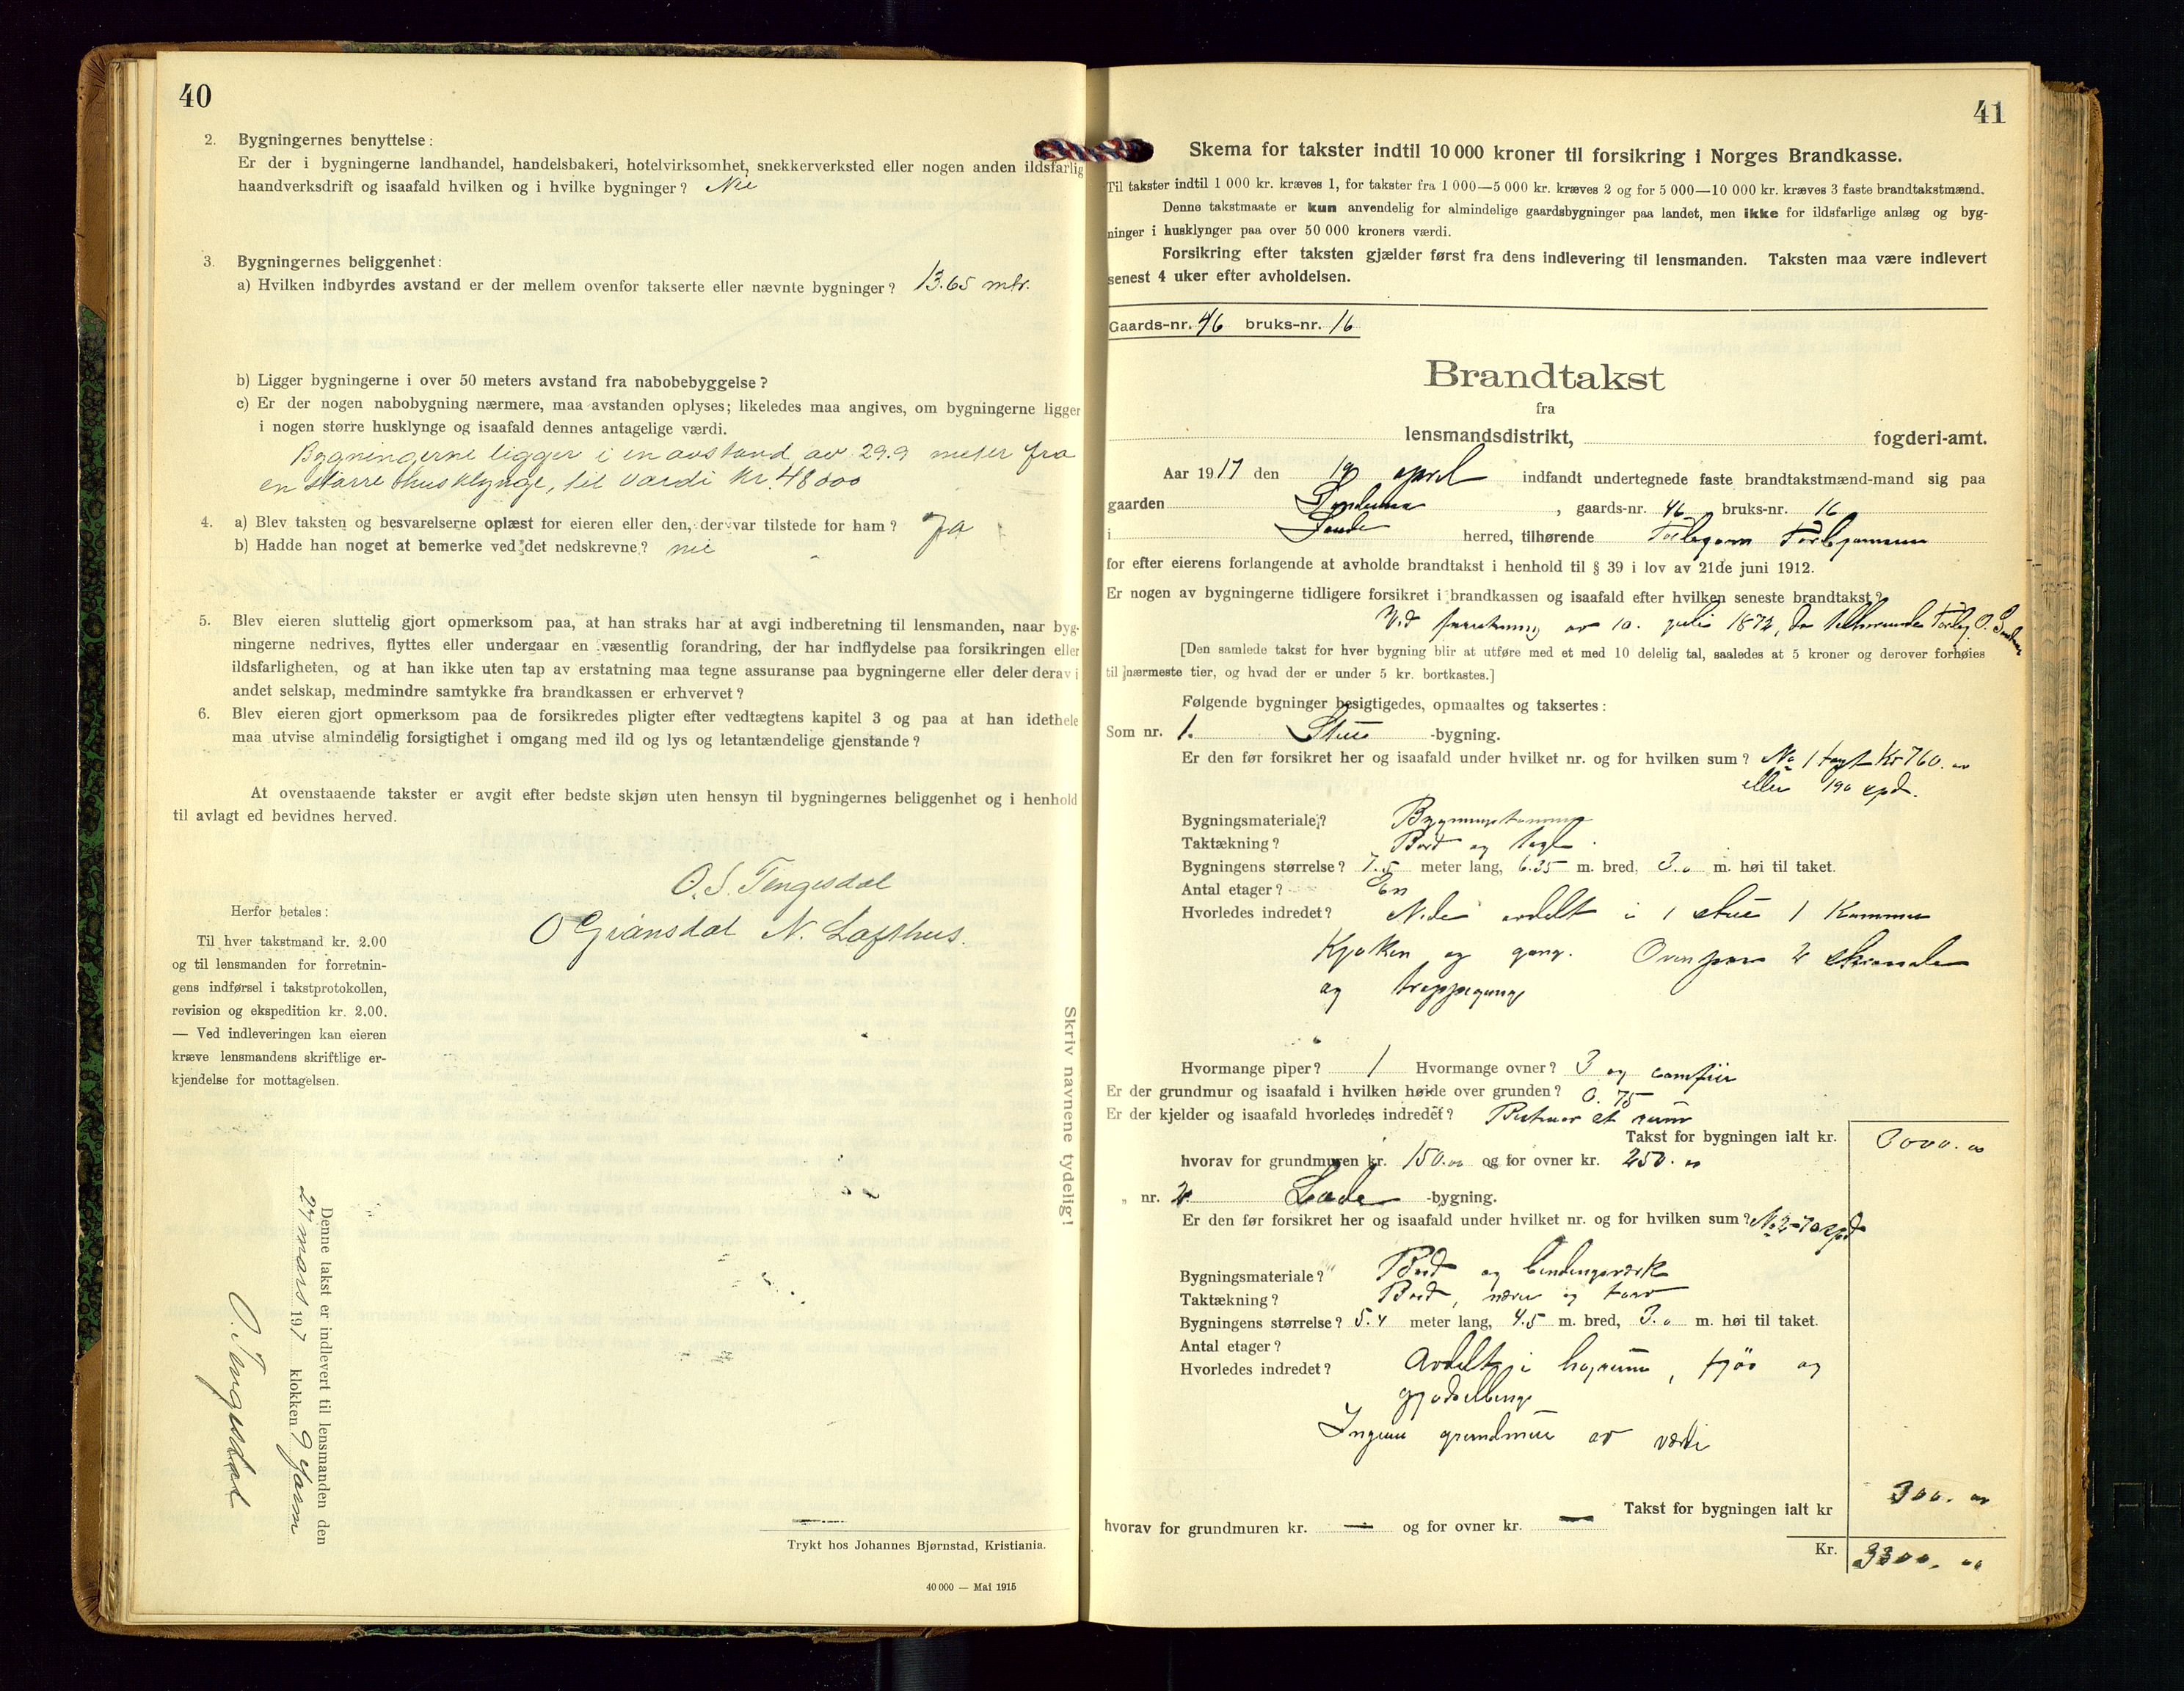 40
2. Bygningernes benyttelse:
Er der i bygningerne landhandel, handelsbakeri, hotelvirksomhet, snekkerverksted eller nogen anden ildsfarlig
haandverksdrift og isaafald hvilken og i hvilke bygninger? Nei
3. Bygningernes beliggenhet:
a) Hvilken indbyrdes avstand er der mellem ovenfor takserte eller nævnte bygninger? 13.65 mtr.
b) Ligger bygningerne i over 50 meters avstand fra nabobebyggelse?
c) Er der nogen nabobygning nærmere, maa avstanden oplyses; likeledes maa angives, om bygningerne ligger
i nogen større husklynge og isaafald dennes antagelige værdi.
Bygningerne ligger i en avstand av 29.9 meter fra
en større husklynge, til værdi kr. 48000
4. a) Blev taksten og besvarelserne oplæst for eieren eller den, der var tilstede for ham? Ja
b) Hadde han noget at bemerke ved det nedskrevne? nei
5. Blev eieren sluttelig gjort opmerksom paa, at han straks har at avgi indberetning til lensmanden, naar byg-
ningerne nedrives, flyttes eller undergaar en væsentlig forandring, der har indflydelse paa forsikringen eller
ildsfarligheten, og at han ikke uten tap av erstatning maa tegne assuranse paa bygningerne eller deler derav i
andet selskap, medmindre samtykke fra brandkassen er erhvervet?
6. Blev eieren gjort opmerksom paa de forsikredes pligter efter vedtægtens kapitel 3 og paa at han idethele
maa utvise almindelig forsigtighet i omgang med ild og lys og letantændelige gjenstande?
At ovenstaaende takster er avgit efter bedste skjøn uten hensyn til bygningernes beliggenhet og i henhold
til avlagt ed bevidnes herved.
O. S. Tengesdal
O Grønsdal N. Lofthus.
Herfor betales:
Til hver takstmand kr. 2.00
og til lensmanden for forretnin-
gens indførsel i takstprotokollen,
revision og ekspedition kr. 2.00.
— Ved indleveringen kan eieren
kræve lensmandens skriftlige er-
kjendelse for mottagelsen.
Skriv navnene tydelig!
Denne takst er indlevert til lensmanden den
27 mars 1917 klokken 9 form
O. Tengesdal
Trykt hos Johannes Bjørnstad, Kristiania.
40 000 — Mai 1915
41
Skema for takster indtil 10 000 kroner til forsikring i Norges Brandkasse.
Til takster indtil 1 000 kr. kræves 1, for takster fra 1 000—5 000 kr. kræves 2 og for 5 000—10 000 kr. kræves 3 faste brandtakstmænd.
Denne takstmaate er kun anvendelig for almindelige gaardsbygninger paa landet, men ikke for ildsfarlige anlæg og byg-
ninger i husklynger paa over 50 000 kroners værdi.
Forsikring efter taksten gjælder først fra dens indlevering til lensmanden. Taksten maa være indlevert
senest 4 uker efter avholdelsen.
Gaards-nr. 46 bruks-nr. 16
Brandtakst
fra
lensmandsdistrikt, fogderi-amt.
Aar 1917 den 19 april indfandt undertegnede faste brandtakstmænd-mand sig paa
gaarden , gaards-nr. 46 bruks-nr. 16
i Sande herred, tilhørende
for efter eierens forlangende at avholde brandtakst i henhold til § 39 i lov av 21de juni 1912.
Er nogen av bygningerne tidligere forsikret i brandkassen og isaafald efter hvilken seneste brandtakst?
Ved forretning av 10. juli 1872, da tilhørende
[Den samlede takst for hver bygning blir at utføre med et med 10 delelig tal, saaledes at 5 kroner og derover forhøies
til nærmeste tier, og hvad der er under 5 kr. bortkastes.]
Følgende bygninger besigtigedes, opmaaltes og taksertes:
Som nr. 1. Stue -bygning.
Er den før forsikret her og isaafald under hvilket nr. og for hvilken sum? No 1 Kr 760. 00
eller 190 spd.
Bygningsmateriale? Bygningstømmer
Taktækning? Bord og tagl
Bygningens størrelse? 7.5 meter lang, 6.35 m. bred, 3.0 m. høi til taket.
Antal etager? En
Hvorledes indredet? Nede avdelt i 1 stue 1 Kammer
Kjøkken og gang. Ovenpaa 2
og trappegang
Hvormange piper? 1 Hvormange ovner? 3 og comfür
Er der grundmur og isaafald i hvilken høide over grunden? 0. 75
Er der kjelder og isaafald hvorledes indredet? et rum
Takst for bygningen ialt kr. 3000. 00
hvorav for grundmuren kr. 150.00 og for ovner kr. 250. 00
„ nr. 2. Lade -bygning.
Er den før forsikret her og isaafald under hvilket nr. og for hvilken sum? No 2 - 70 spd
Bygningsmateriale? Bord og bindingsværk
Taktækning? Bord, næver og torv
Bygningens størrelse? 5.4 meter lang, 4.5 m. bred, 3.0 m. høi til taket.
Antal etager?
Hvorledes indredet? Avdelt i høyrum, fjøs og
gjødselbinge
Ingen grundmur av værdi
Takst for bygningen ialt kr 300. 00
hvorav for grundmuren kr. — og for ovner kr. —
Kr. 3300. 00